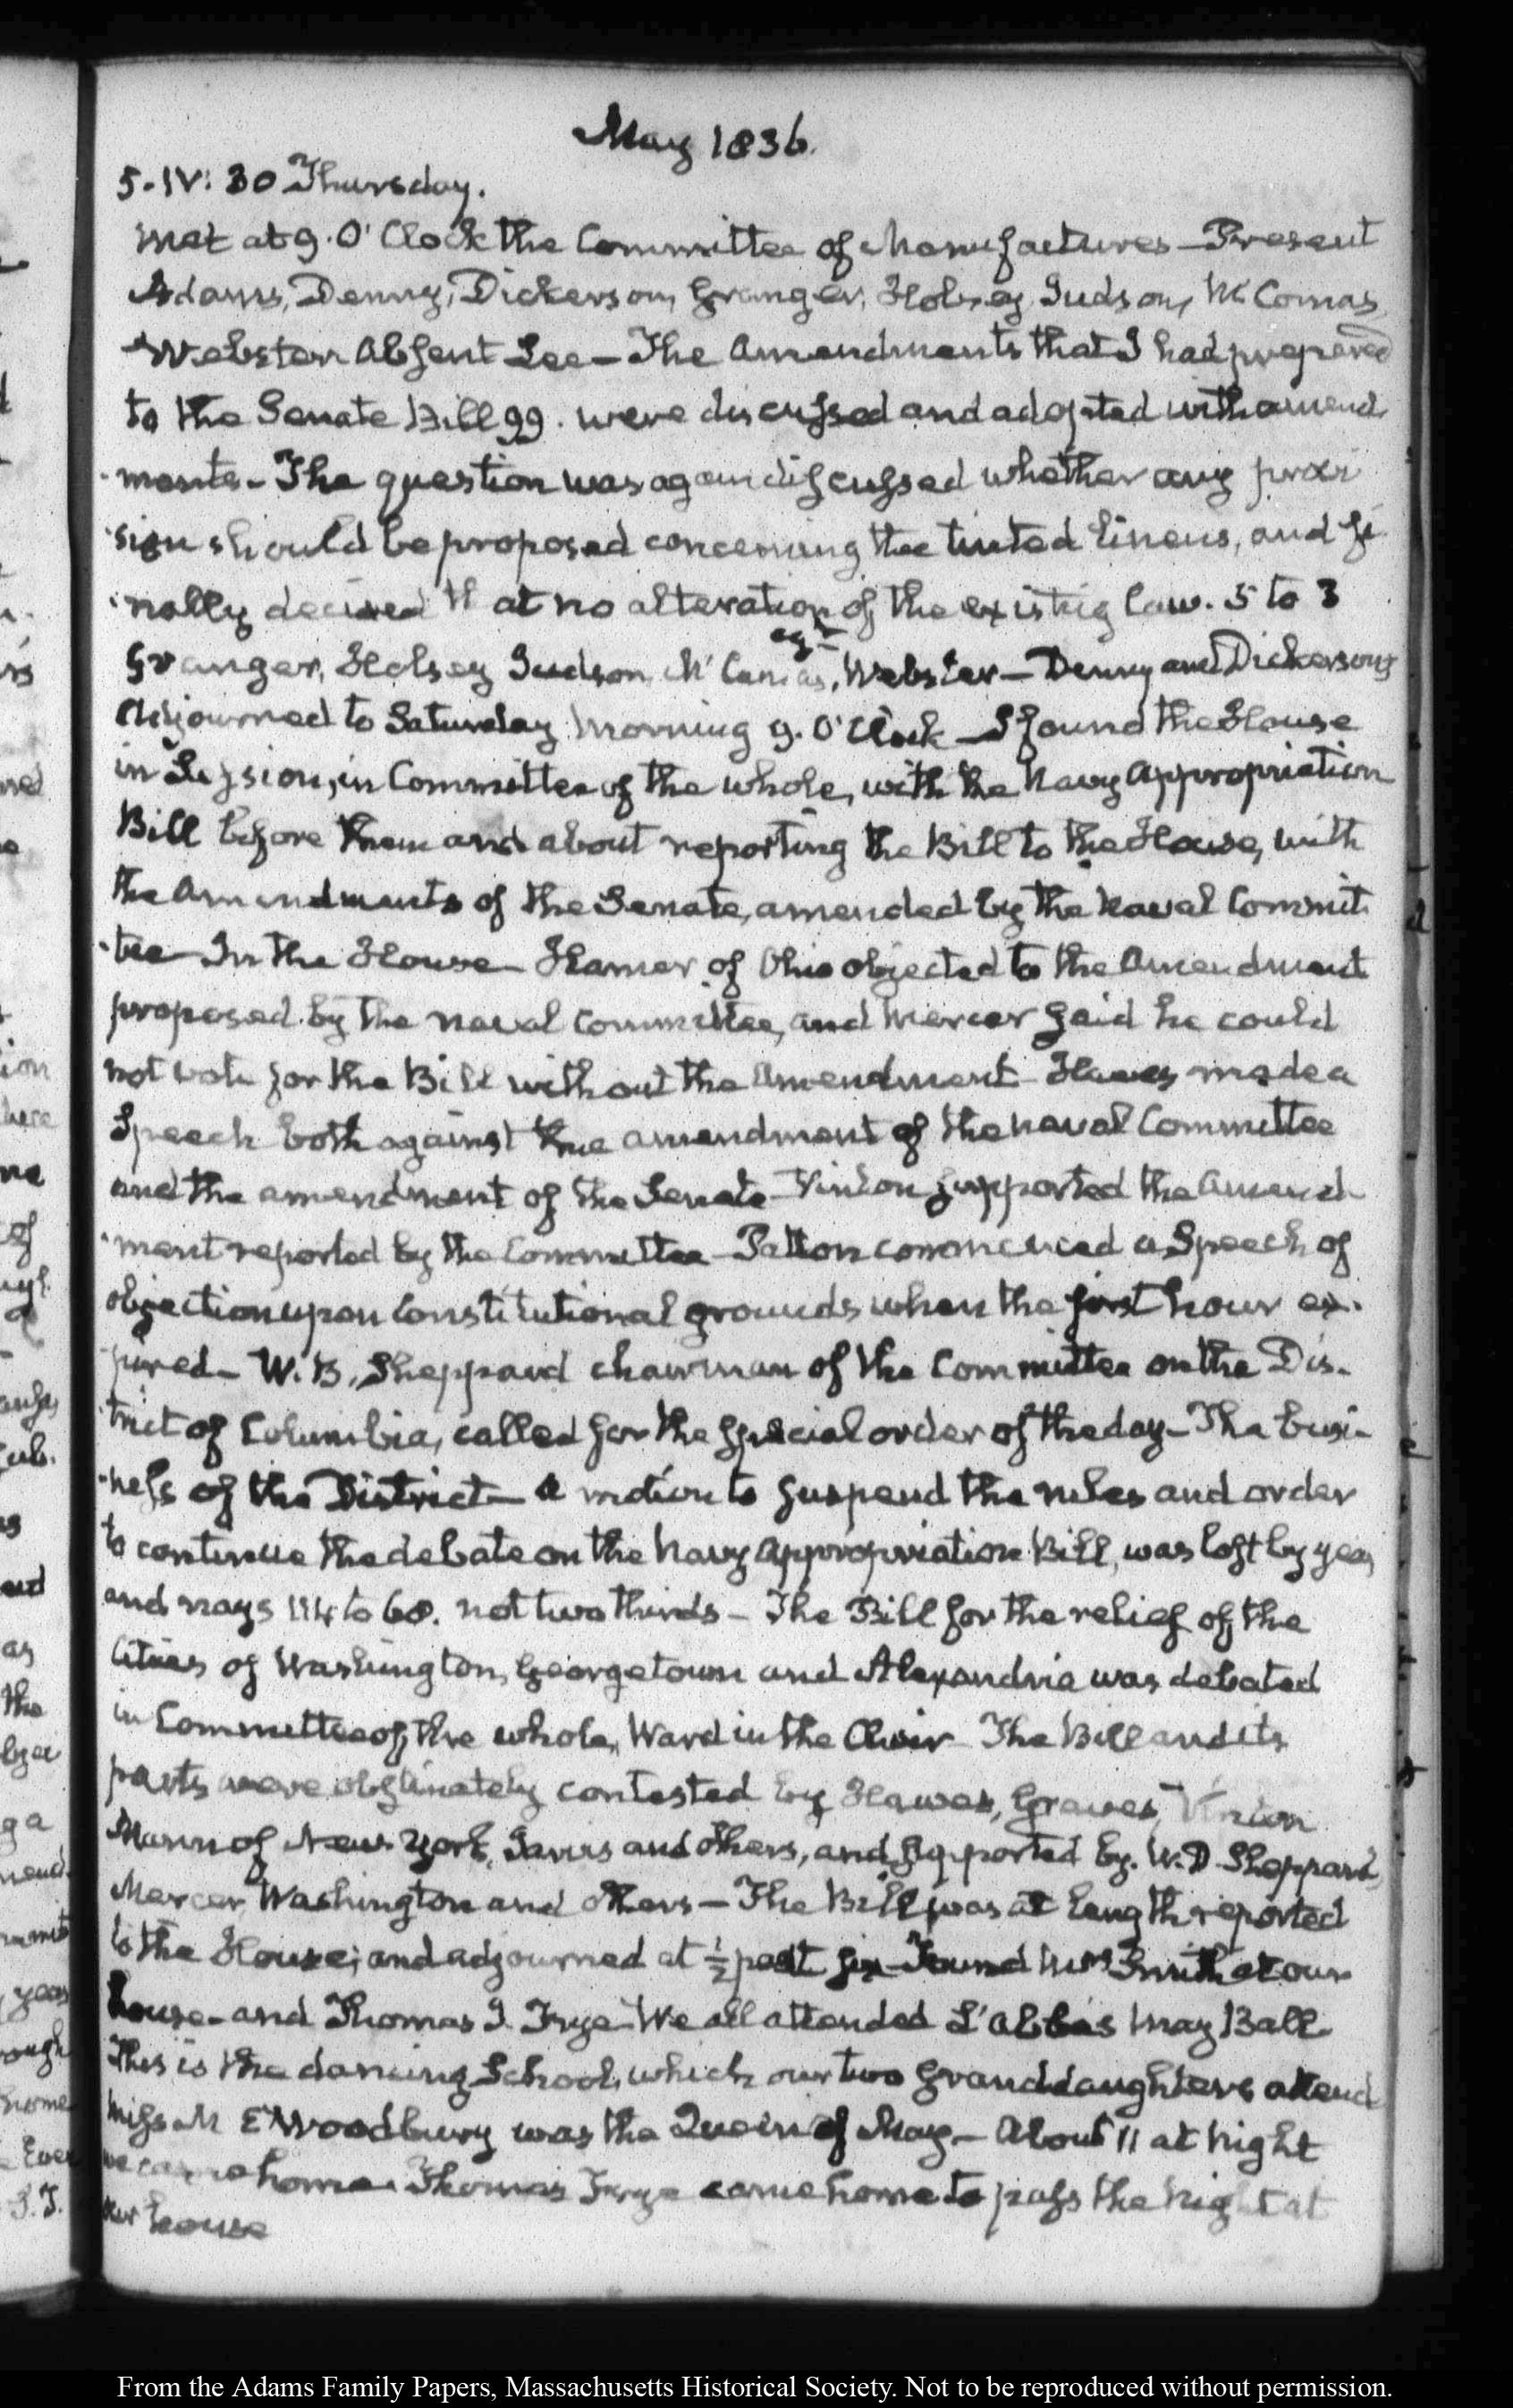 May 1836.
5. IV: 30 Thursday.
Met at 9. O'Clock the Committee of Manufactures — Present
Adams, Denny, Dickerson, Granger, Holsey, Judson, McComas
Webster Absent Lee — The Amendments that I had prepared
to the Senate Bill 99. were discussed and adopted with amend-
-ments. The question was again discussed whether any provi
-sion should be proposed concerning the tinted linens, and fi
-nally decided that no alteration of the existing law. 5 to 3
agt
Granger, Holsey Judson McComas, Webster — Denny and Dickerson
Adjourned to Saturday Morning 9. O'Clock — I found the House
in Session, in Committee of the whole, with the Navy Appropriation
Bill before them and about reporting the Bill to the House, with
the Amendments of the Senate, amended by the Naval Commit
-tee — In the House — Hamer of Ohio objected to the Amendment
proposed by the naval Committee, and Mercer said he could
not vote for the Bill without the Amendment — Hawes made a
Speech both against the amendment of the naval Committee
and the amendment of the Senate — Vinton supported the Amend-
-ment reported by the Committee — Patton commenced a Speech of
objection upon Constitutional grounds when the first hour ex-
-pired — W. B. Sheppard chairman of the Committee on the Dis-
-trict of Columbia, called for the special order of the day — The busi-
-ness of the District — A motion to suspend the rules and order
to continue the debate on the Navy Appropriation Bill, was lost by yeas
and nays 114 to 68. not two thirds — The Bill for the relief of the
Cities of Washington, Georgetown and Alexandria was debated
in Committee of the whole, Ward in the Chair — The Bill and its
parts were obstinately contested by Hawes, Graves, Vinton
Mann of New-York, Janes and others, and supported by W. B Sheppard,
Mercer, Washington and others — The Bill was at length reported
to the House; and adjourned at ½ past six — Found Mrs Smith at our
house — and Thomas J. Frye — We all attended L'Abbé's May Ball
This is the dancing School, which our two Granddaughters attend
Miss M E Woodbury was the Queen of May — About 11 at Night
we came home. Thomas Frye came home to pass the Night at
our house
From the Adams Family Papers, Massachusetts Historical Society. Not to be reproduced without permission.